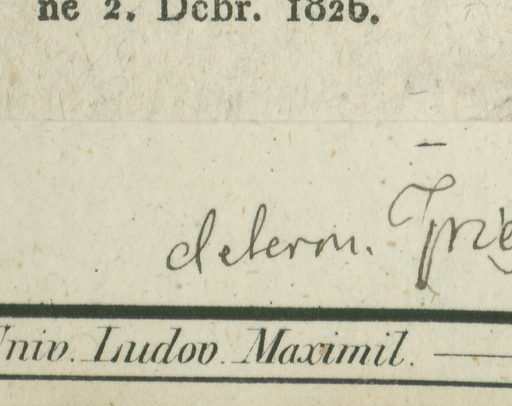 ne 2. Dcbr. 1826.
determ.
Univ. Ludov. Maximil.